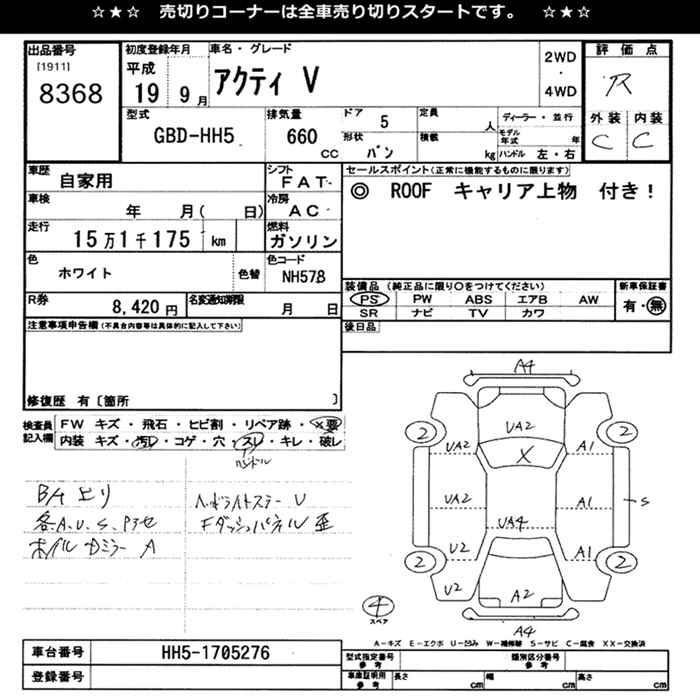 ☆★☆ 売切りコーナーは全車売り切りスタートです。 ☆★☆
出品番号 初度登録年月 車名・グレード 2WD ・ 4WD 評価点
[1911] 平成 アクティ V R
8368 19 9月 外装 内装
型式 排気量 ドア 5 定員 人 ディーラー・並行 C C
GBD-HH5 660 cc 形状 バン 積載 kg モデル年式 年 ハンドル 左・右
車歴 自家用 シフト FAT セールスポイント(正常に機能するものに限ります)
車検 年 月( 日) 冷房 AC ◎ ROOF キャリア上物 付き!
走行 15万1千175 km 燃料 ガソリン
色 ホワイト 色替 色コード NH578
装備品 (純正品に限り○をつけてください) 新車保証書
R券 8,420円 名変通知期限 月 日 PS PW ABS エアB AW 有・無
SR ナビ TV カワ
注意事項申告欄(不具合内容等は具体的に記入して下さい) 後日品
修復歴 有〔箇所 〕
検査員記入欄 FW キズ・飛石・ヒビ割・リペア跡・X要
内装 キズ・汚れ・コゲ・穴・スレ・キレ・破レ
ハンドル
A4
2 UA2 2
UA2 X A1
UA2 A1 S
UA4
U2 A1
2 2
U2 A2
A4
各A.U.S.Pアセ
ホイル Dミラー A
ヘッドライトステー U
Fダッシュパネル 歪
4
スペア
A−キズ E−エクボ U−凹み W−補修跡 S−サビ C−腐食 XX−交換済
車台番号 HH5-1705276 型式指定番号 参考 類別区分番号 参考
登録番号 車庫証明用 参考 長さ cm 幅 cm 高さ cm